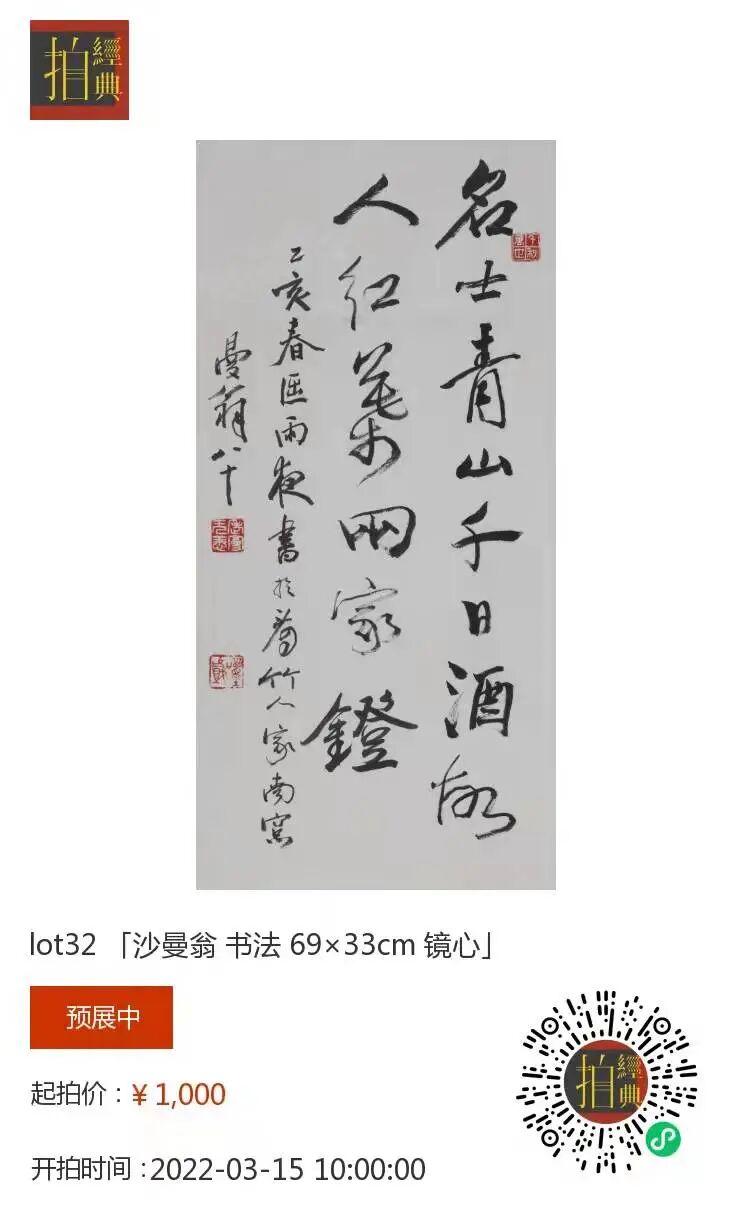 經典拍
名士青山千日酒故
人紅葉兩家鐙
乙亥春雨夜書於竹人家南窗
曼翁八十
lot32 「沙曼翁 书法 69×33cm 镜心」
预展中
起拍价：¥ 1,000
开拍时间：2022-03-15 10:00:00
經典拍